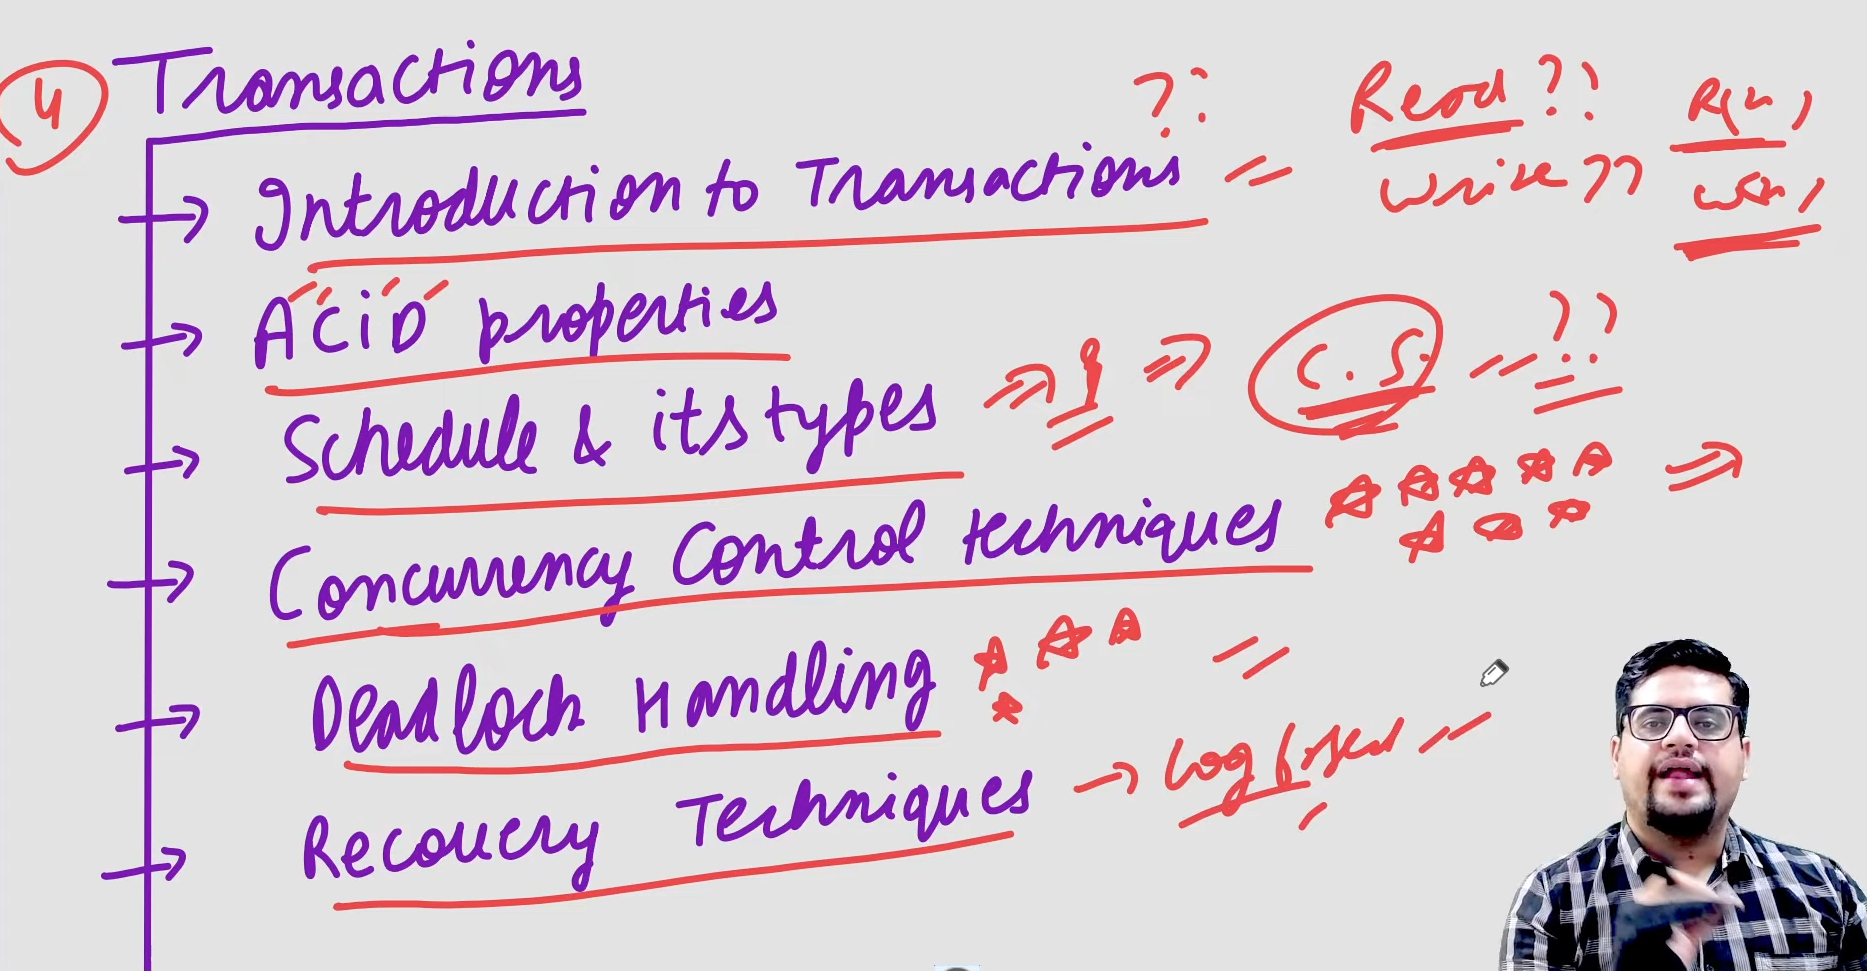 4 Transactions
Introduction to Transactions ?? Read ?? R(x)
write ?? W(x)
ACiD properties
Schedule & its types C.S. ??
Concurrency Control techniques
Deadlock Handling
Recovery Techniques Log based